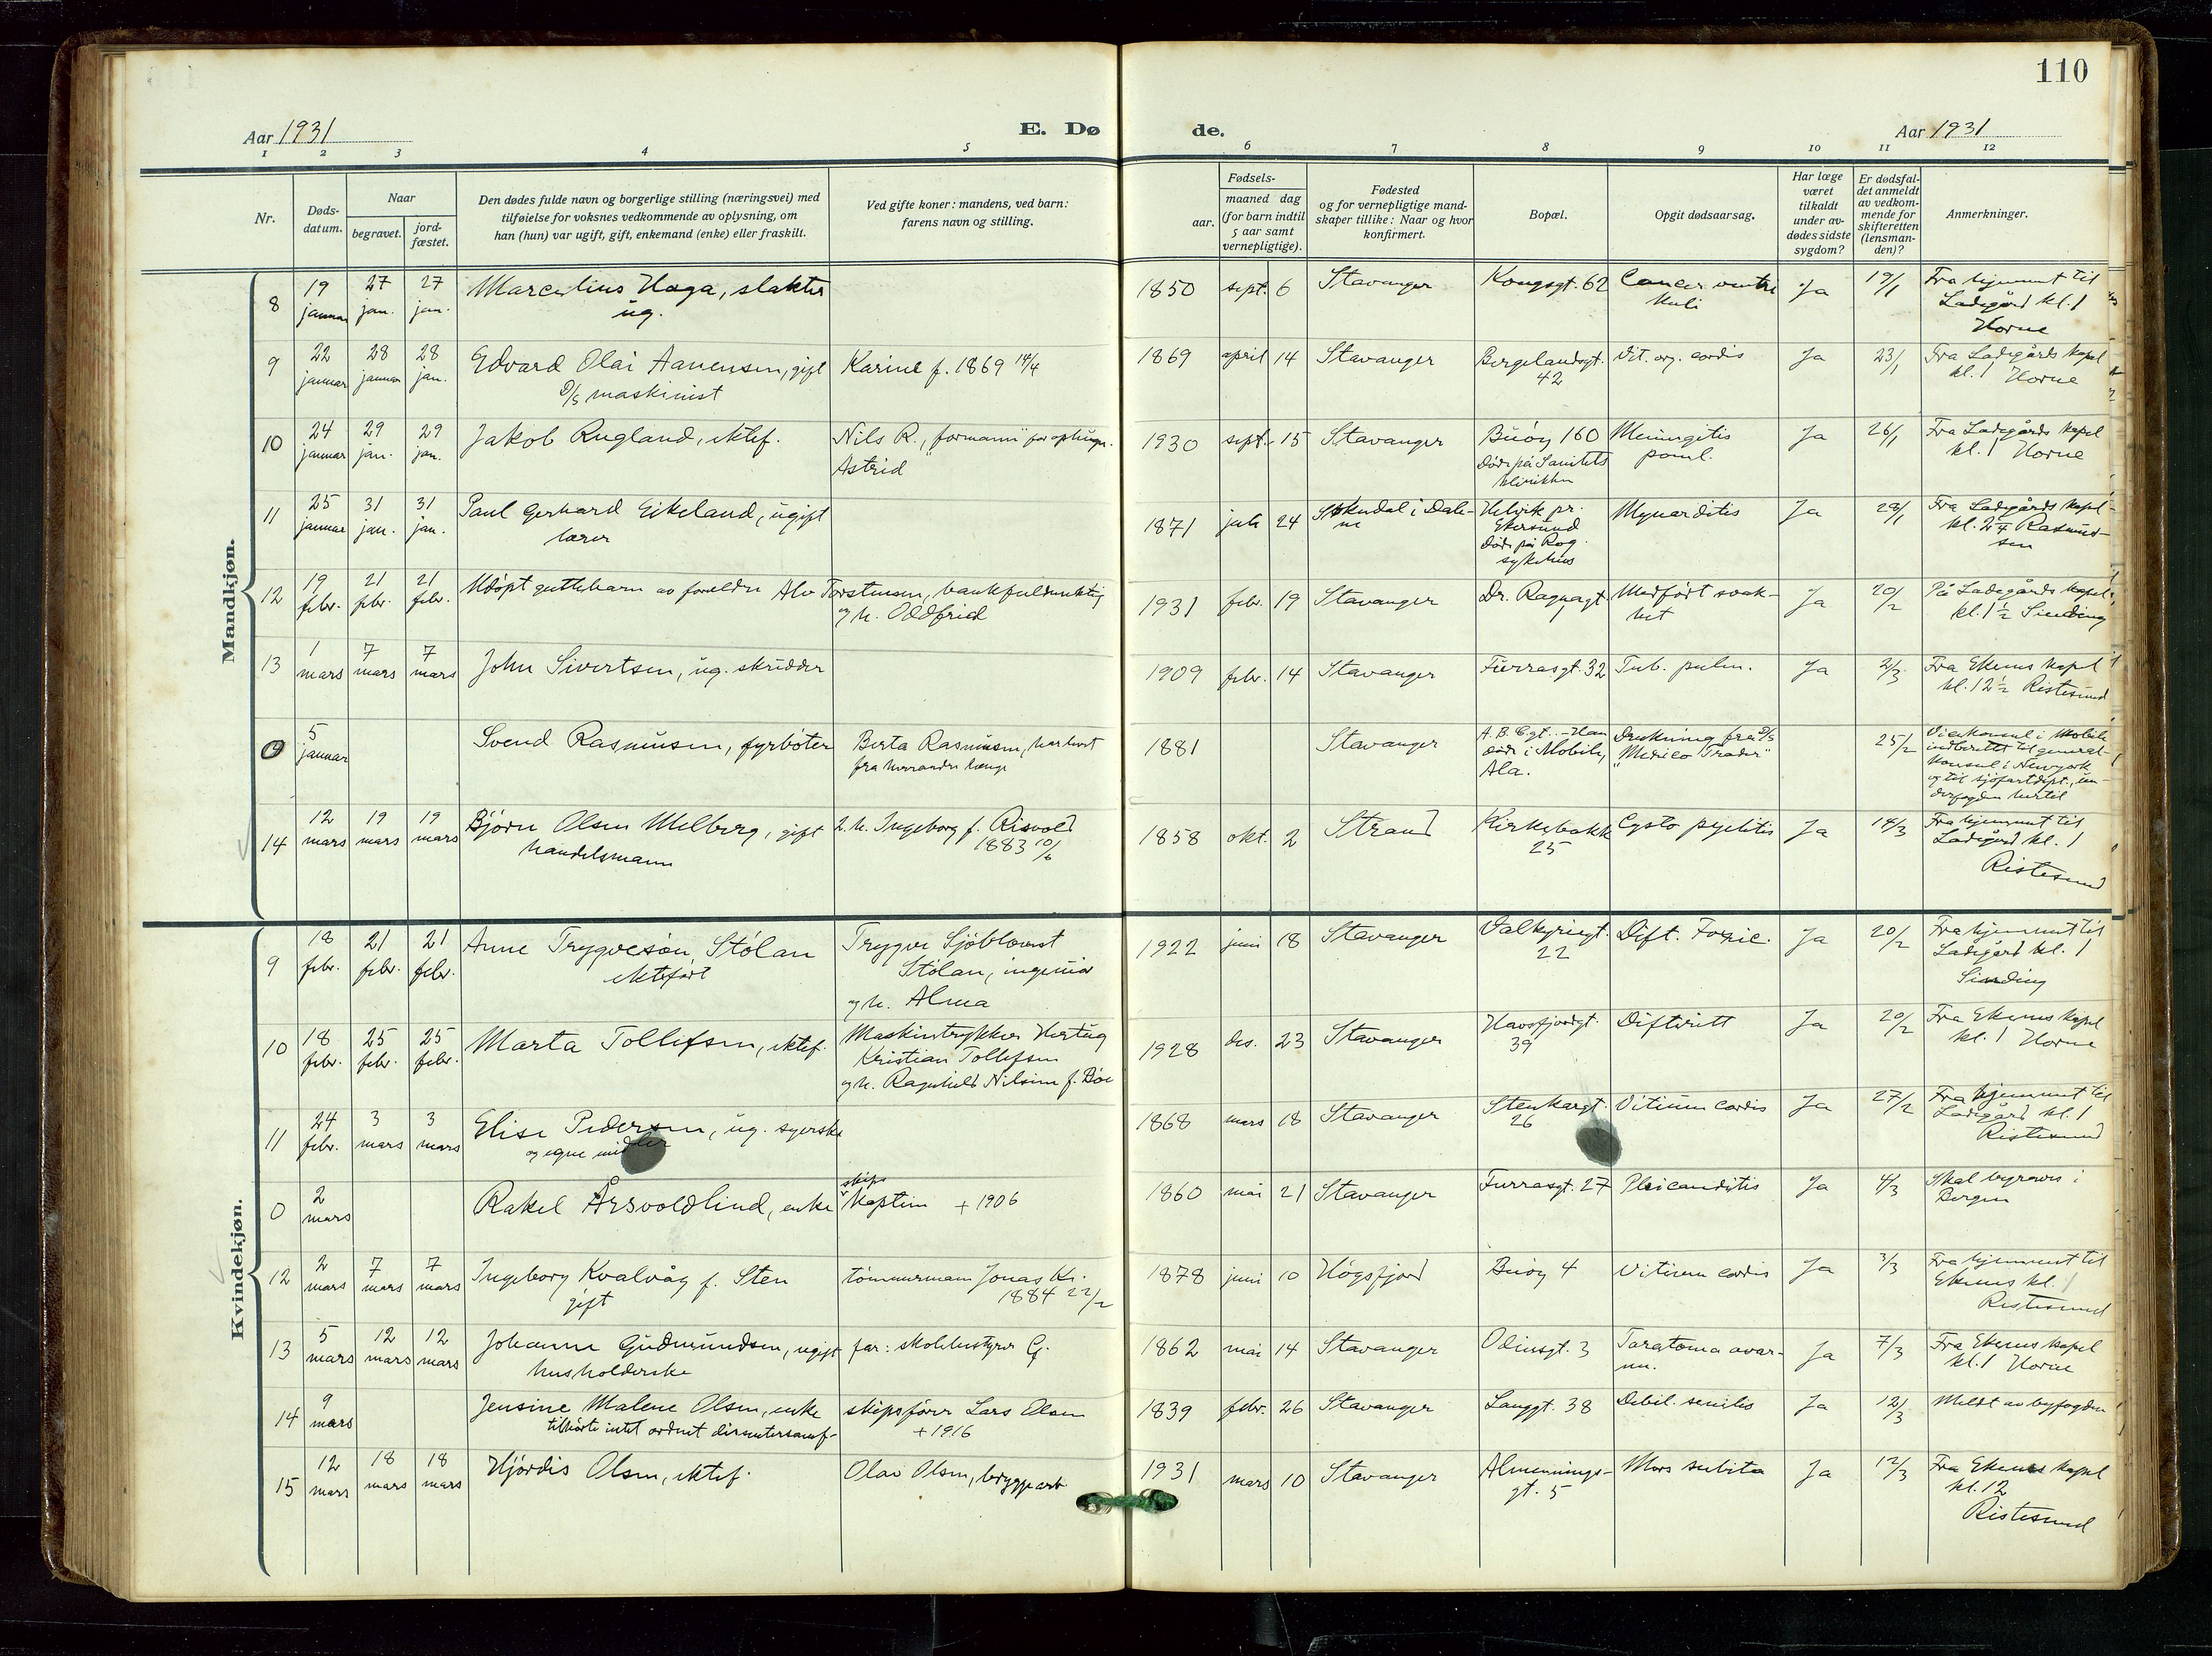 110
Aar 1931 E. Dø de. Aar 1931
1 2 3 4 5 6 7 8 9 10 11 12
Nr.
Døds-
datum.
Naar
begravet.
jord-
fæstet.
Den dødes fulde navn og borgerlige stilling (næringsvei) med
tilføielse for voksnes vedkommende av oplysning, om
han (hun) var ugift, gift, enkemand (enke) eller fraskilt.
Ved gifte koner: mandens, ved barn:
farens navn og stilling.
Fødsels-
aar. maaned dag
(for barn indtil
5 aar samt
vernepligtige).
Fødested
og for vernepligtige mand-
skaper tillike: Naar og hvor
konfirmert.
Bopæl.
Opgit dødsaarsag.
Har læge
været
tilkaldt
under av-
dødes sidste
sygdom?
Er dødsfal-
det anmeldt
av vedkom-
mende for
skifteretten
(lensman-
den)?
Anmerkninger.
Mandkjøn.
8 19 januar 27 jan. 27 jan. Marcelius Haga, slakter
ug.
1850 sept. 6 Stavanger Kongsgt. 62 Cancer ventri
kuli
Ja 19/1 Fra hjemmet til
Ladegård kl. 1
Horne
9 22 januar 28 januar 28 jan. Edvard Olai Aanensen, gift
D/S maskinist
Karine f. 1869 14/4
1869 april 14 Stavanger Bergelandsgt.
42
Vit. org. cordis Ja 23/1 Fra Ladegårds kapel
kl. 1 Horne
10 24 januar 29 jan. 29 jan. Jakob Rugland, ektef.
Nils R., "formann"
Astrid
1930 sept. 15 Stavanger Buøy 160
Døde på Sanitets
klinikken
Meningitis
Ja 26/1 Fra Ladegårds kapel
kl. 1 Horne
11 25 januar 31 jan. 31 jan. Paul Gerhard Eikeland, ugift
lærer
1871 juli 24 Sokndal i Dale-
ne
Helvik pr.
Ekersund
døde på Rog.
sykehus
Myocarditis Ja 28/1 Fra Ladegårds kapel
kl. 2 Rasmus-
sen
12 19 febr. 21 febr. 21 febr. Udøpt guttebarn av foreldre Alv Torstensen, bankfuldmektig
og h. Oddfrid
1931 febr. 19 Stavanger Dr. Ragnagt
1
Medfødt svak-
het
Ja 20/2 På Ladegårds kapel
kl. 1 1/2 Sinding
13 1 mars 7 mars 7 mars John Sivertsen, ug. skredder
1909 febr. 14 Stavanger Furrasgt. 32 Tub. pulm. Ja 2/3 Fra Ekenes kapel
kl. 12 1/2 Ristesund
0 5 januar Svend Rasmussen, fyrbøter
Berta Rasmussen, har levet
fra hverandre længe
1881 Stavanger A.B.C.gt. - Han
døde i Mobile,
Ala.
Drukning fra D/S
"Mexico Trader"
25/2 Vicekonsul i Mobile
indberettet til general-
konsul i Newyork
og til sjøfartsdept.,
hertil
14 12 mars 19 mars 19 mars Bjørn Olsen Melberg, gift
handelsmann
2. h. Ingeborg f. Risvold
1883 10/6
1858 okt. 2 Strand Kirkebakk
25
Cysto pyelitis Ja 14/3 Fra hjemmet til
Ladegård kl. 1
Ristesund
Kvindekjøn.
9 18 febr. 21 febr. 21 febr. Anne Trygvesøn Stølan
ektefødt
Trygve Sjöblomst
Stølan, ingeniør
og h. Alma
1922 juni 18 Stavanger Valkyriegt.
22
Dift. Toxic. Ja 20/2 Fra hjemmet til
Ladegård kl. 1
Sinding
10 18 febr. 25 febr. 25 febr. Marta Tollefsen, ektef.
Maskintrykker Hertug
Kristian Tollefsen
og h. Ragnhild Nilsine f. Bøe
1928 des. 23 Stavanger Havsfjordgt.
39
Difteritt Ja 20/2 Fra Ekenes kapel
kl. 1 Horne
11 24 febr. 3 mars 3 mars Elise Pedersen, ug. syerske
og egne midler
1868 mars 18 Stavanger Stenkargt.
26
Vitium cordis Ja 27/2 Fra hjemmet til
Ladegård kl. 1
Ristesund
0 2 mars Rakel Årsvoldlind, enke
skips
kaptein + 1906
1860 mai 21 Stavanger Furrasgt. 27 Ja 4/3 Skal begraves i
Bergen
12 2 mars 7 mars 7 mars Ingeborg Kvalvåg f. Sten
gift
tømmermann Jonas Kr.
1884 22/2
1878 juni 10 Høgsfjord Buøy 4 Vitium cordis Ja 3/3 Fra hjemmet til
Ekenes kl. 1
Ristesund
13 5 mars 12 mars 12 mars Johanne Gudmundsen, ugift
husholderske
far: skolebestyrer G.
1862 mai 14 Stavanger Odinsgt. 3 Taratoma ovar-
Ja 7/3 Fra Ekenes kapel
kl. 1 Horne
14 9 mars Jensine Malene Olsen, enke
tilhørte intet ordnet dissentersamf.
skipsfører Lars Olsen
+ 1916
1839 febr. 26 Stavanger Langgt. 38 Debil. senilis Ja 12/3 Meldt av byfogden
15 12 mars 18 mars 18 mars Hjørdis Olsen, ektef.
Olav Olsen, bryggearb
1931 mars 10 Stavanger Almennings-
gt. 5
Mors subita Ja 12/3 Fra Ekenes kapel
kl. 12
Ristesund